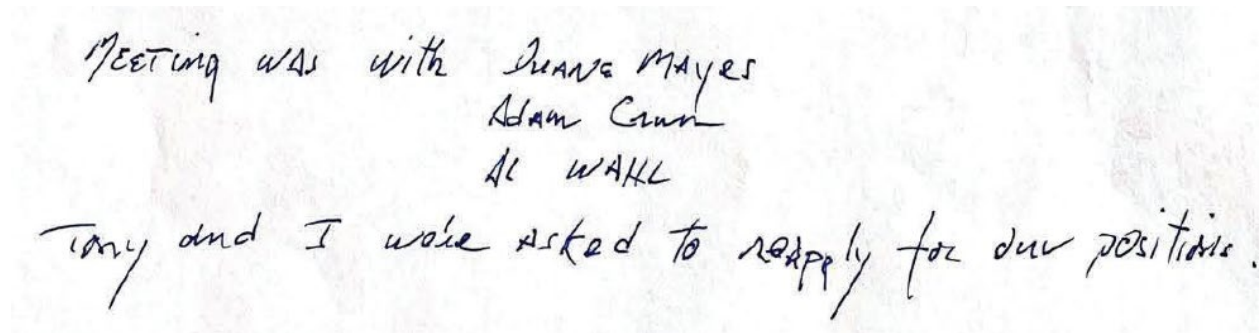 Meeting was with Duane Mayes
Adam Crum
Al Wahl
Tony and I were asked to reapply for our positions.